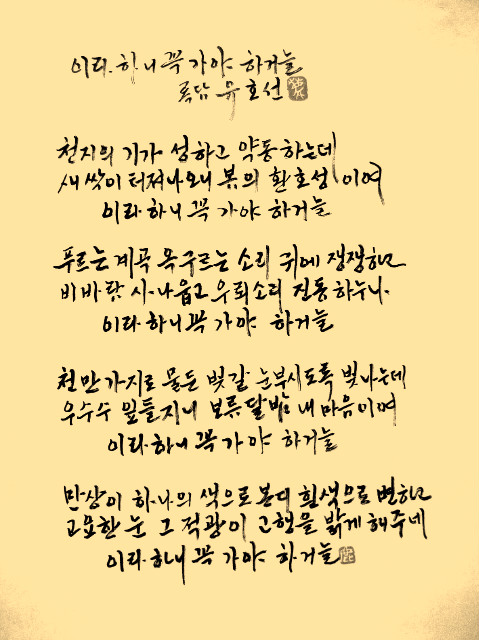 이라 하니 꼭 가야 하거늘
록담 유호선
천지의 기가 성하고 약동하는데
새싹이 터져나오니 봄의 환호성이여
이라 하니 꼭 가야 하거늘
푸르는 계곡 옥구르는 소리 귀에 쟁쟁하고
비바람 사나웁고 우뢰소리 진동하누나
이라 하니 꼭 가야 하거늘
천만가지로 물든 빛갈 눈부시도록 빛나는데
우수수 잎들지니 보름달밤 내 마음이여
이라 하니 꼭 가야 하거늘
만상이 하나의 색으로 본디 흰색으로 변하고
고요한 눈 그 적광이 고행을 밝게 해주네
이라 하니 꼭 가야 하거늘